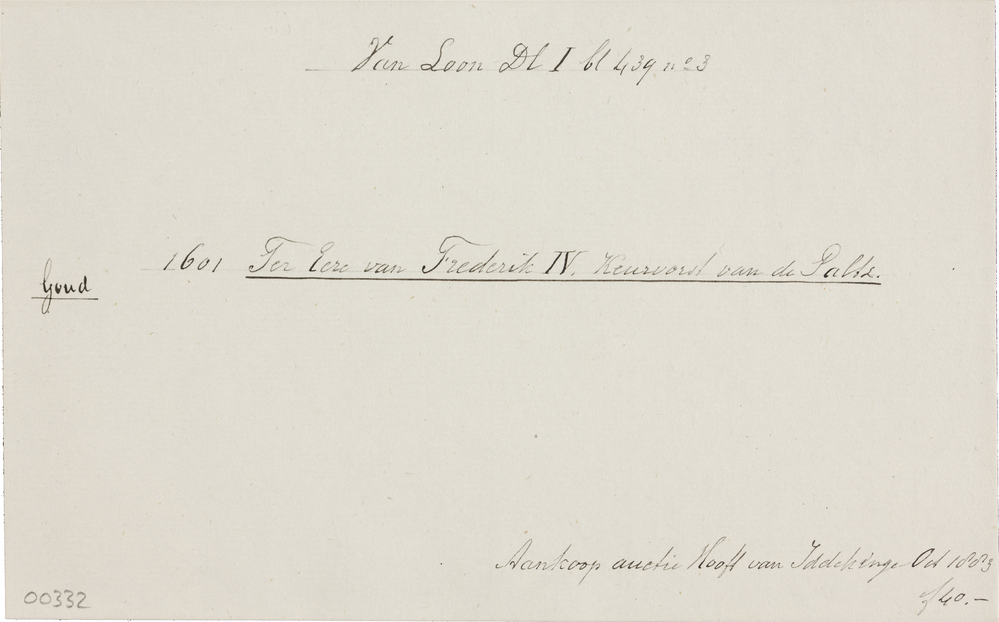 Van Loon Dl I bl 439 no 3
1601 Ter Eere van Frederik IV. Keurvorst van de Palts.
Goud
Aankoop auctie Hooft van Iddekinge Oct 1883
f 40.-
00332